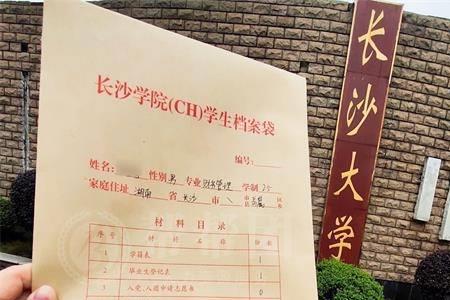 长沙学院(CH)学生档案袋
编号:
姓名: 性别 男 专业 财务管理 学制 2.5
家庭住址 湖南 省 长沙 市 \ 市县 区乡
材料目录
序号 材料名称 份数
1 学籍表 1
2 毕业生登记表 1
3 入党、入团申请志愿书 0
长沙大学